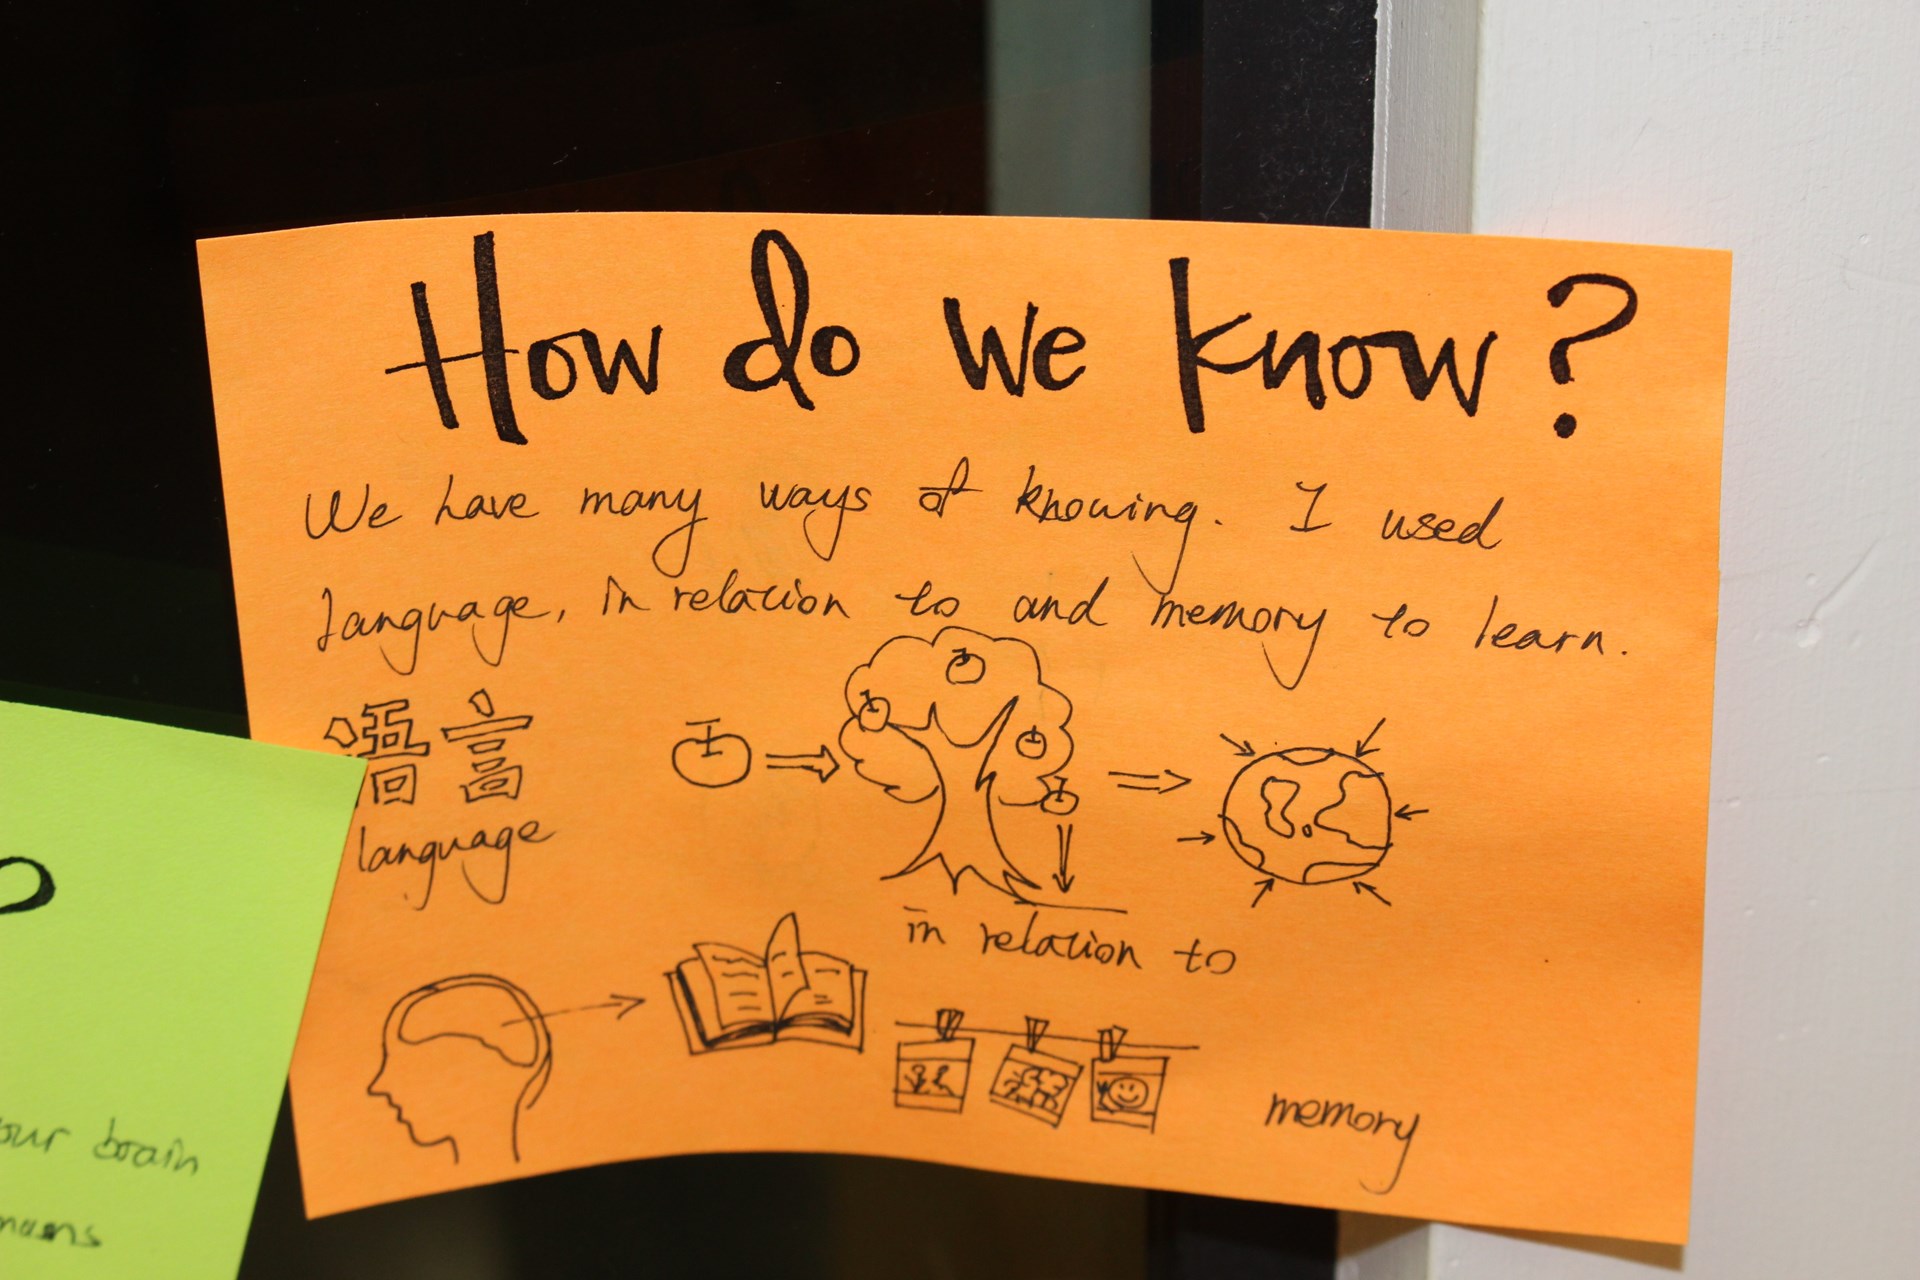 How do we know?
We have many ways of knowing. I used
language, in relation to and memory to learn.
語言
language
in relation to
memory
our brain